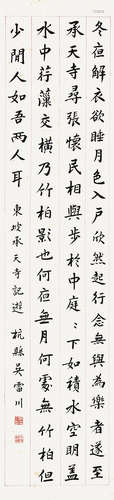 冬夜解衣欲睡月色入戶欣然起行念無與為樂者遂至
承天寺尋張懷民相與步於中庭〻下如積水空明蓋
水中荇藻交橫乃竹柏影也何夜無月何處無竹柏但
少閒人如吾兩人耳 東坡承天寺記遊 杭縣吳雷川